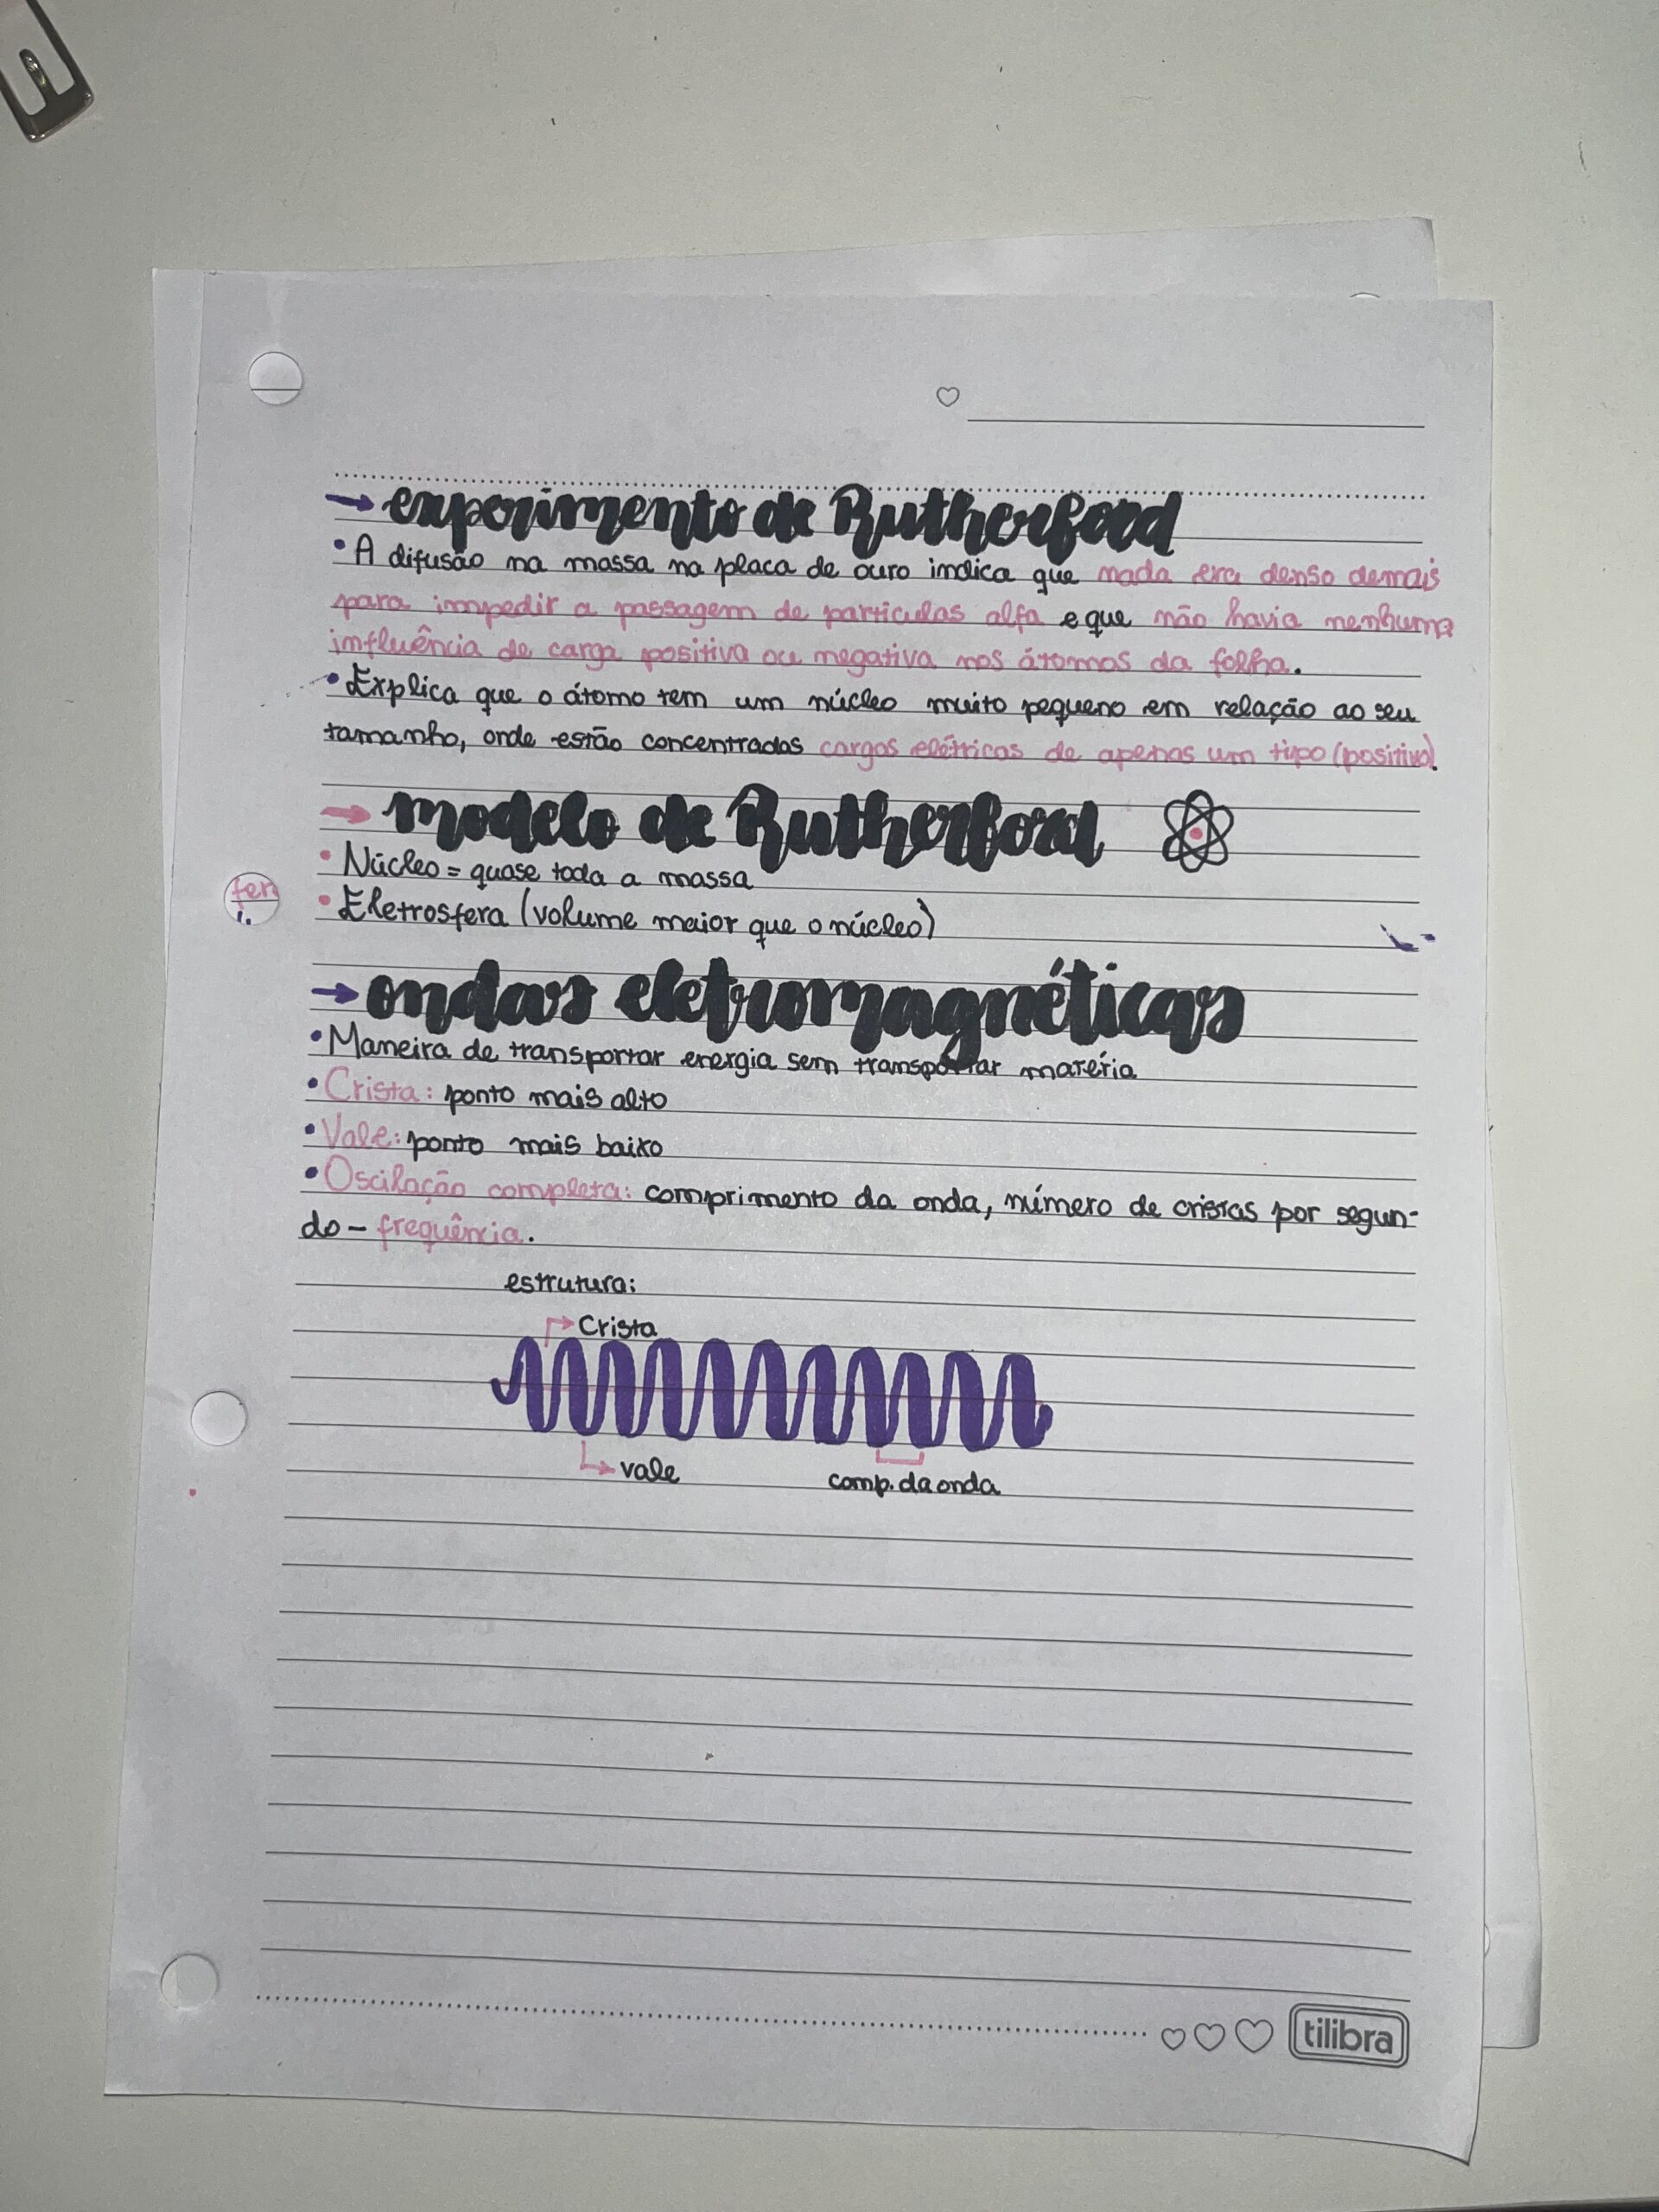 → experimento de Rutherford
• A difusão na massa na placa de ouro indica que nada era denso demais
para impedir a passagem de partículas alfa e que não havia nenhuma
influência de carga positiva ou negativa nos átomos da folha.
• Explica que o átomo tem um núcleo muito pequeno em relação ao seu
tamanho, onde estão concentradas cargas elétricas de apenas um tipo (positivo).
→ modelo de Rutherford
• Núcleo = quase toda a massa
fer
• Eletrosfera (volume maior que o núcleo)
→ ondas eletromagnéticas
• Maneira de transportar energia sem transportar matéria
• Crista: ponto mais alto
• Vale: ponto mais baixo
• Oscilação completa: comprimento da onda, número de cristas por segun-
do - frequência.
estrutura:
→ Crista
→ vale
comp. da onda
tilibra